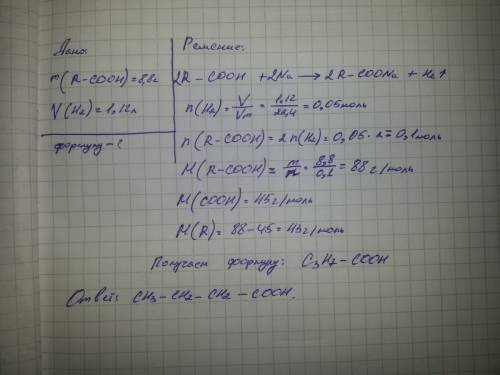 Дано:
m(R-COOH)=8,8г
V(H₂)=1,12л
формулу-?
Решение:
2R-COOH +2Na → 2R-COONa + H₂↑
n(H₂)= V/Vm = 1,12/22,4 = 0,05моль
n(R-COOH)=2n(H₂)=0,05·2=0,1моль
M(R-COOH)= m/n = 8,8/0,1 = 88 г/моль
M(COOH)=45г/моль
M(R)= 88-45=43г/моль
Получаем формулу: C₃H₇-COOH
Ответ: CH₃-CH₂-CH₂-COOH.